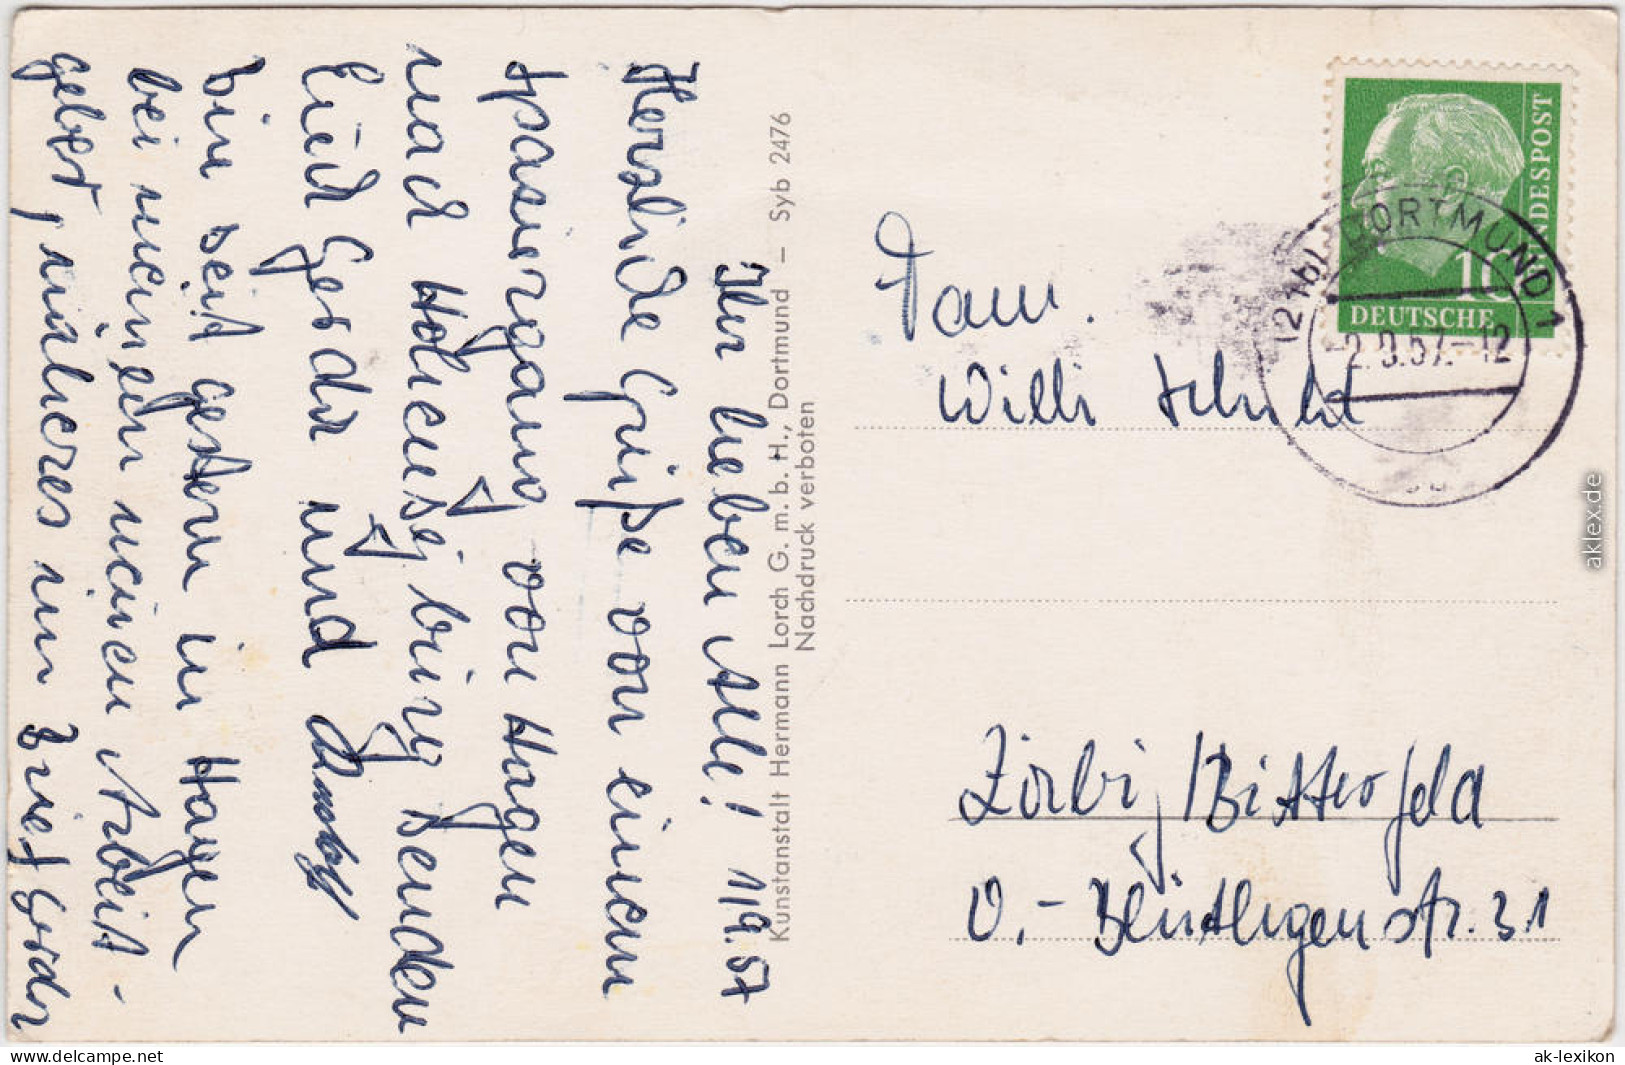 Ihr lieben Alle! 1.9.57
Herzliche Grüße von einem
spaziergang von Hagen
nach Hohensyburg senden
Euch Gerda und
bin seit gestern in Hagen
bei meinem neuen Arbeit-
geber, näheres im Brief Gerda
Kunstanstalt Hermann Lorch G. m. b. H., Dortmund – Syb 2476
Nachdruck verboten
DEUTSCHE BUNDESPOST
10
DORTMUND 1
-2.9.57.-12
Fam.
Willi
Zörbig/Bitterfeld
str. 31
aklex.de
ak-lexikon
www.delcampe.net